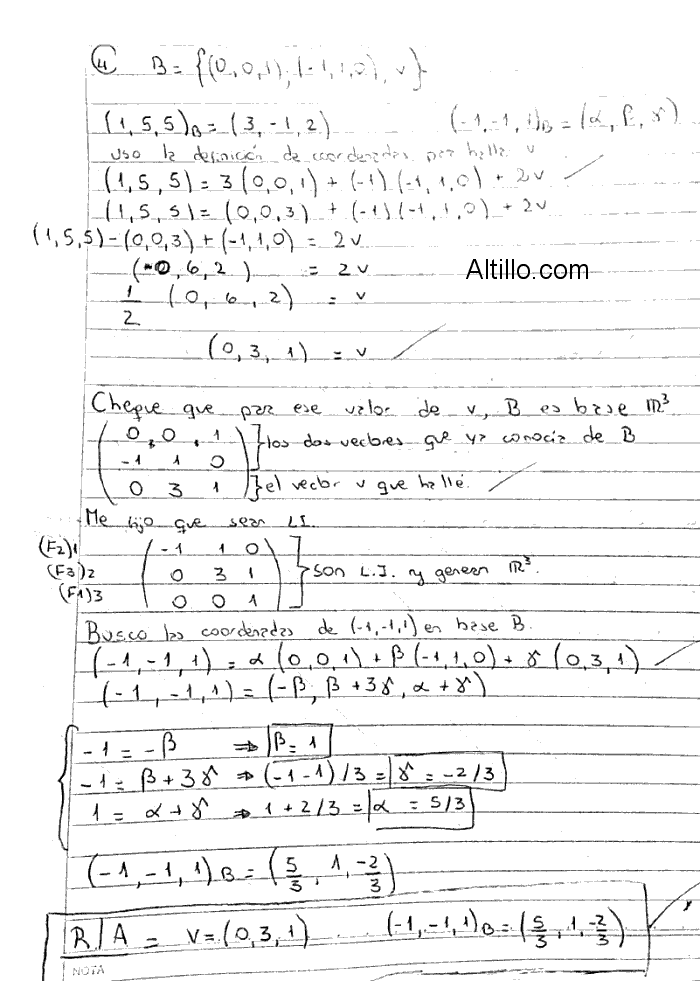 4 B = {(0,0,1), (-1,1,0), v}
(1,5,5)B = (3,-1,2) (-1,-1,1)B = (α, β, γ)
uso la definición de coordenadas para hallar v
(1,5,5) = 3 (0,0,1) + (-1) (-1,1,0) + 2v
(1,5,5) = (0,0,3) + (-1) (-1,1,0) + 2v
(1,5,5) - (0,0,3) + (-1,1,0) = 2v
(0,6,2) = 2v
Altillo.com
1/2 (0,6,2) = v
(0,3,1) = v
Cheque que para ese valor de v, B es base ℝ³
0, 0, 1 } los dos vectores que ya conocía de B
-1 1 0
0 3 1 } el vector v que hallé.
Me fijo que sean LI.
(F2)1 -1 1 0
(F3)2 0 3 1 } son L.I. y generan ℝ³.
(F1)3 0 0 1
Busco las coordenadas de (-1,-1,1) en base B.
(-1,-1,1) = α (0,0,1) + β (-1,1,0) + γ (0,3,1)
(-1,-1,1) = (-β, β+3γ, α+γ)
-1 = -β ⇒ β = 1
-1 = β + 3γ ⇒ (-1-1)/3 = γ = -2/3
1 = α + γ ⇒ 1 + 2/3 = α = 5/3
(-1,-1,1)B = (5/3, 1, -2/3)
R/A = v = (0,3,1) (-1,-1,1)B = (5/3, 1, -2/3)
NOTA